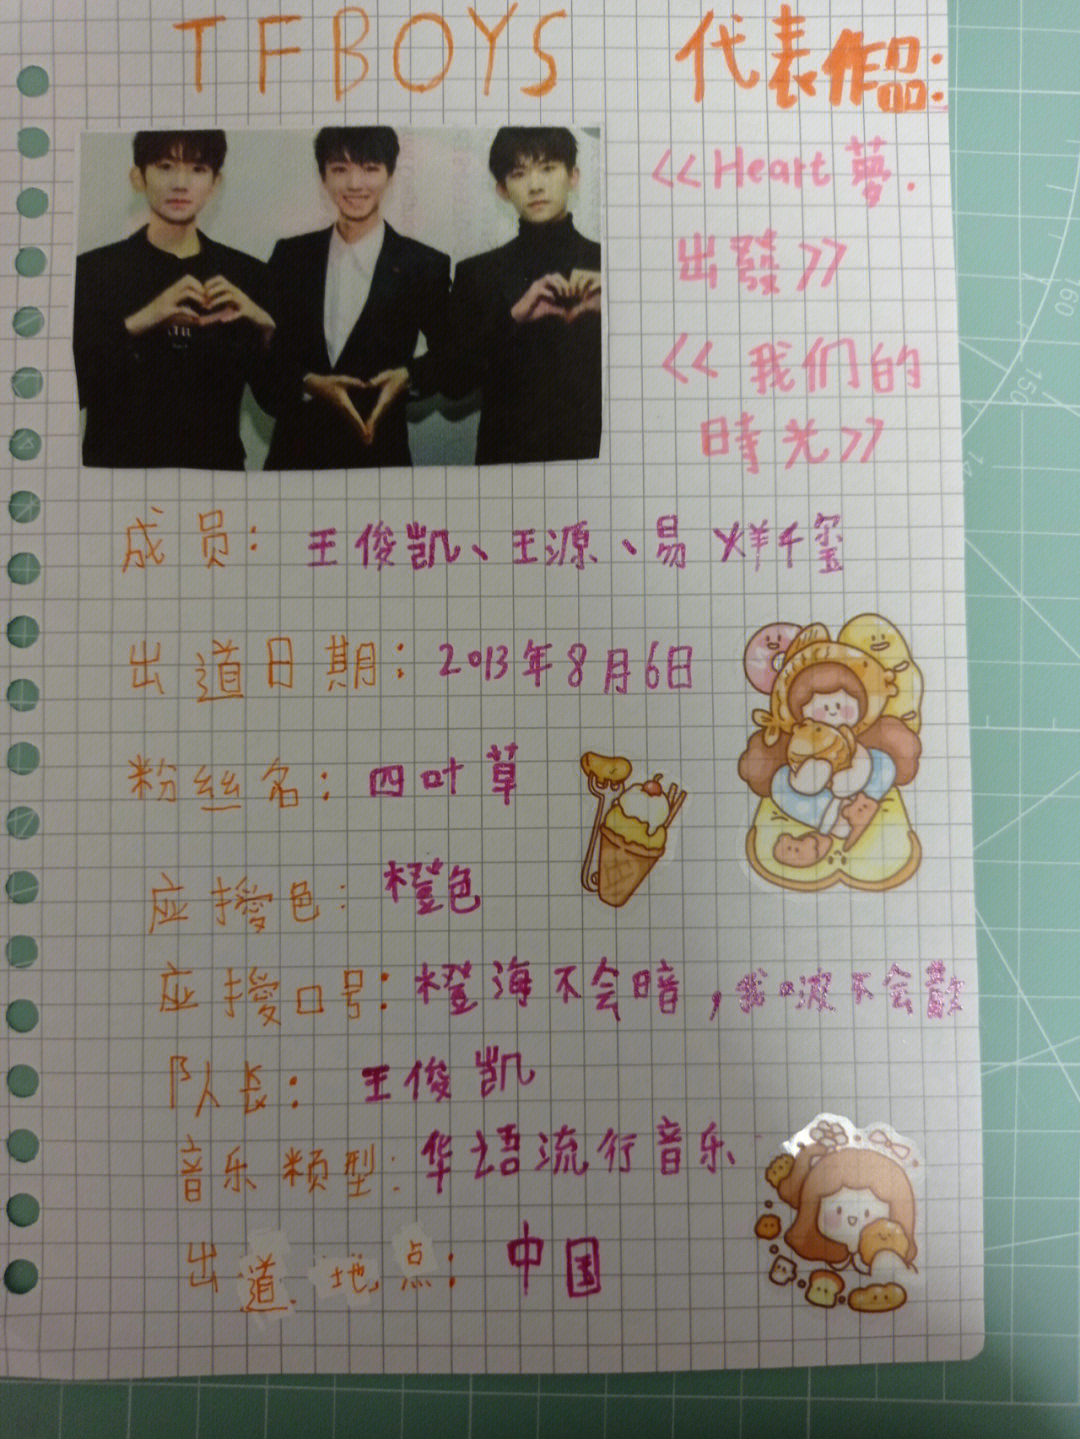 TFBOYS
代表作品:
<<Heart 夢.
出發>>
<<我们的
時光>>
成员: 王俊凯、王源、易烊千玺
出道日期: 2013年8月6日
粉丝名: 四叶草
应援色: 橙色
应援口号: 橙海不会暗,我波不会散
队长: 王俊凯
音乐类型: 华语流行音乐
出道地点: 中国
160
150